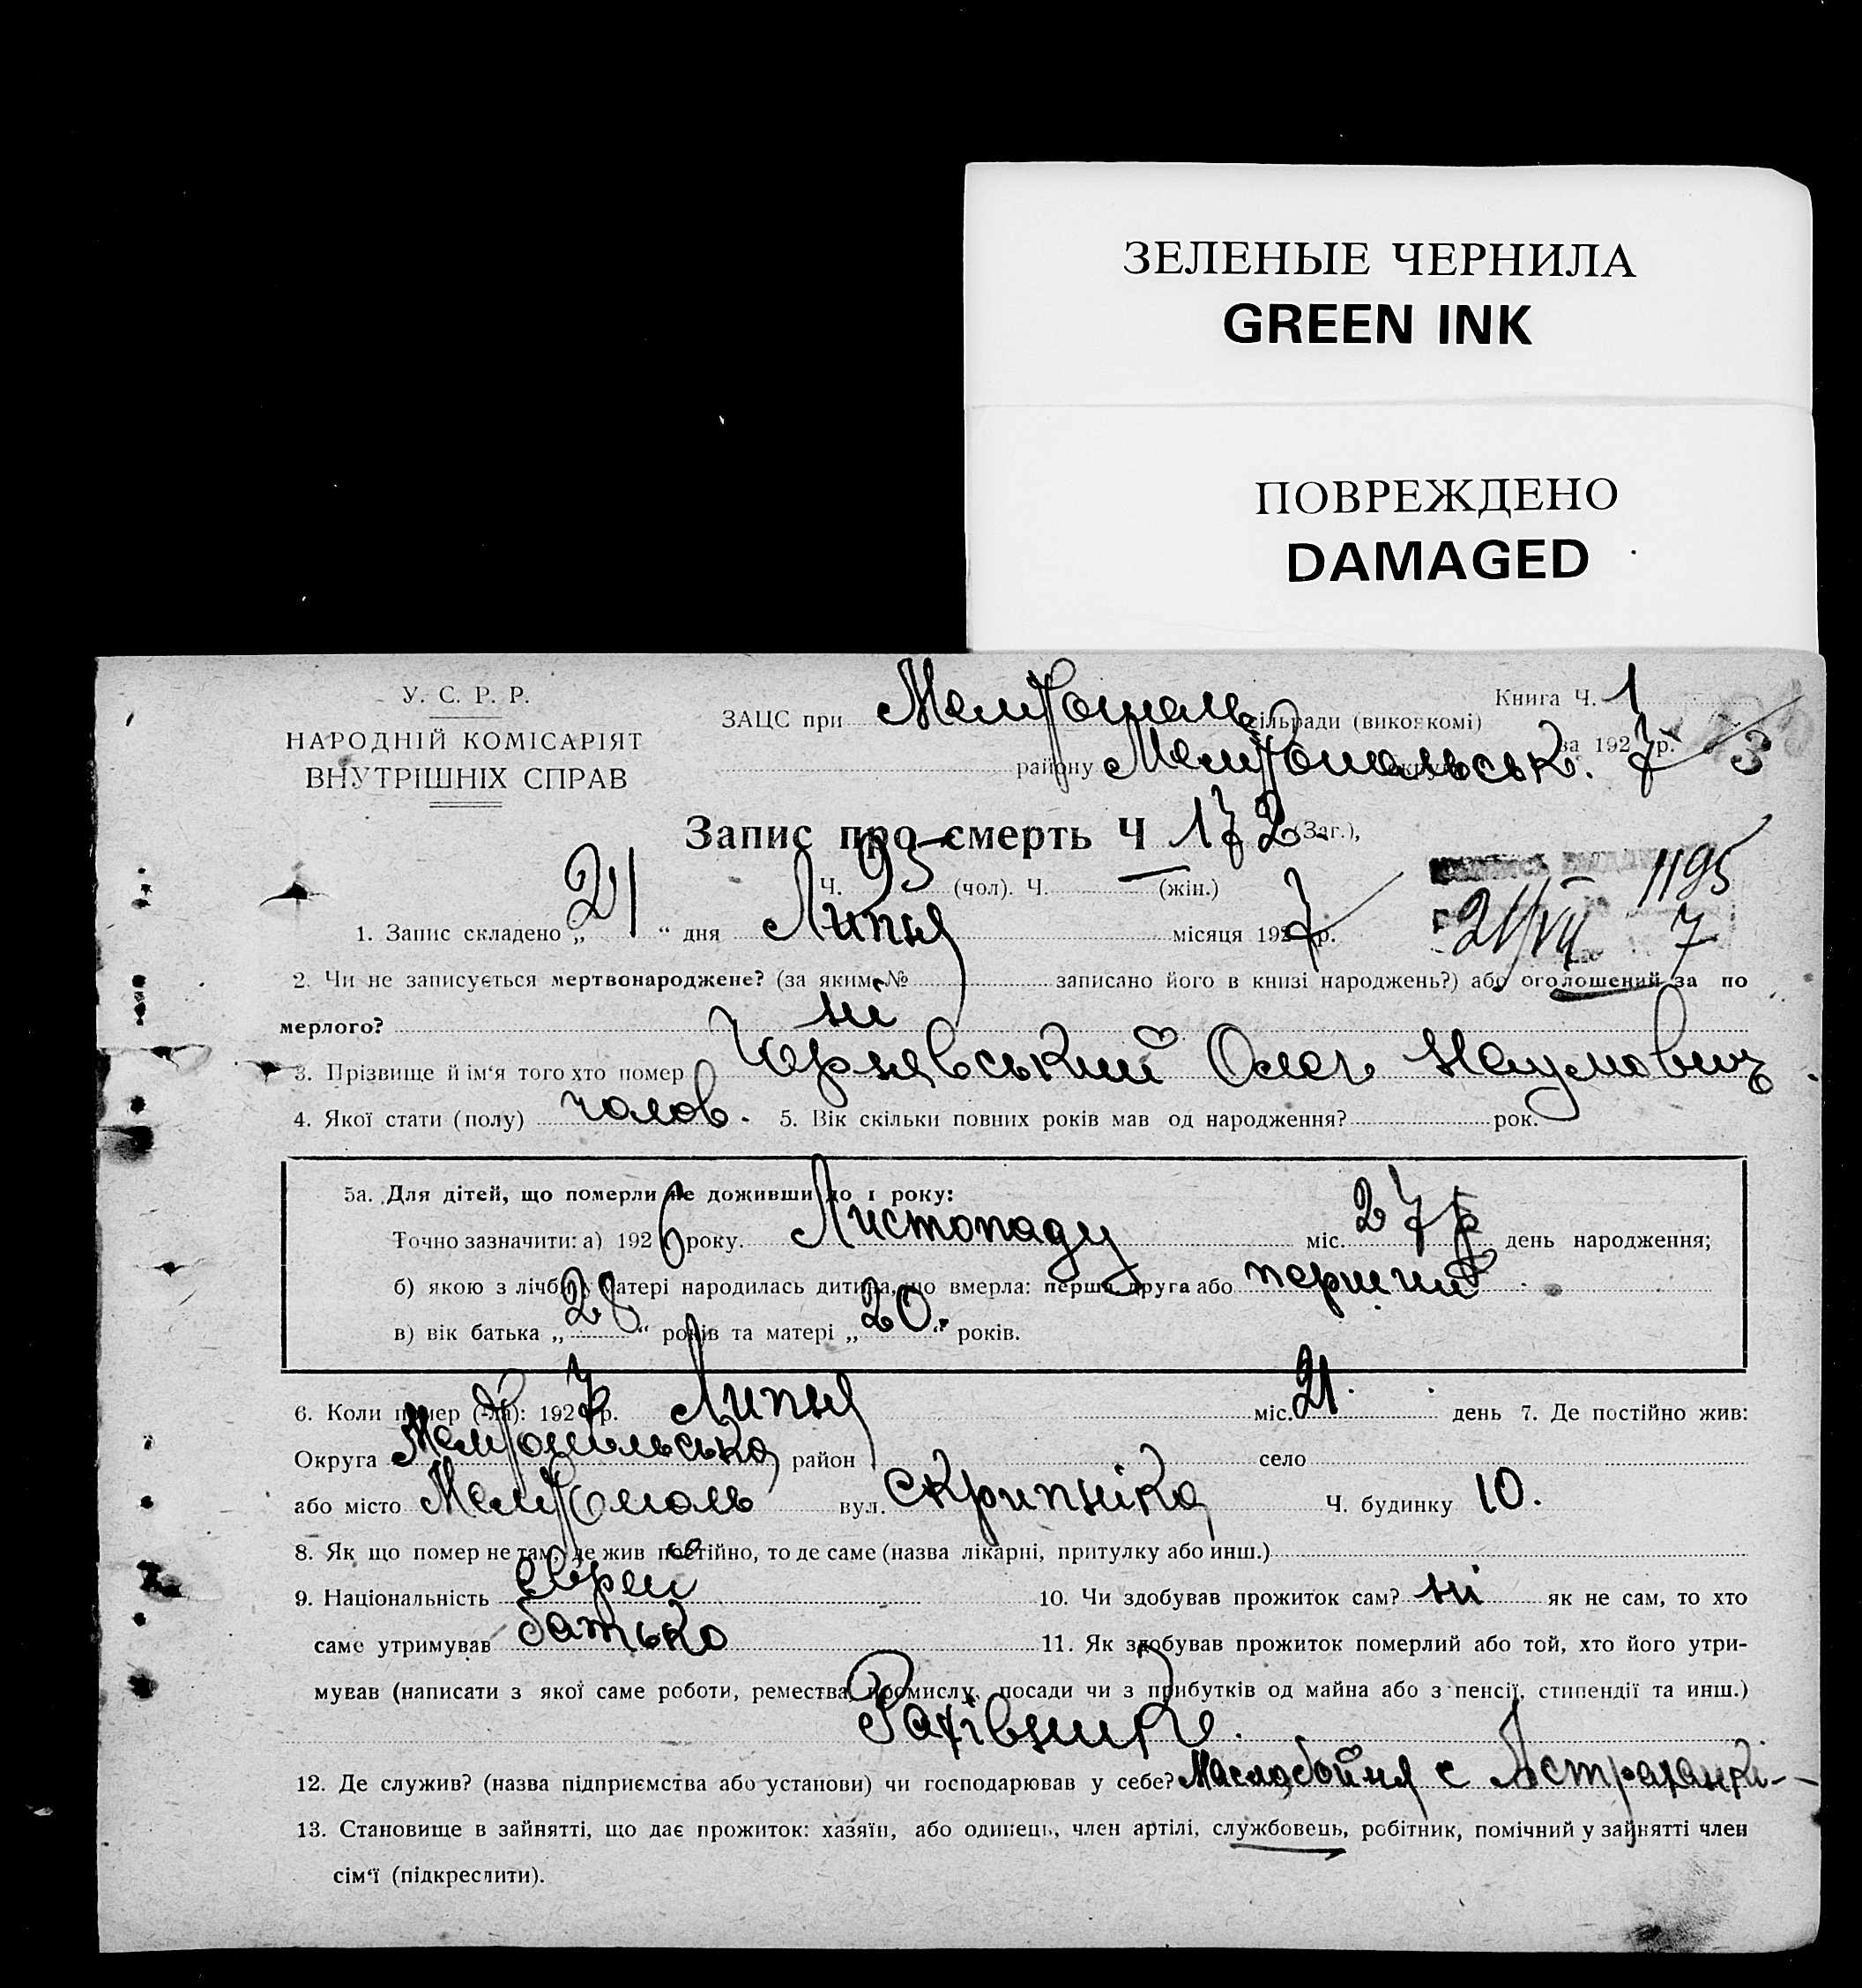 ЗЕЛЕНЫЕ ЧЕРНИЛА
GREEN INK
ПОВРЕЖДЕНО
DAMAGED
У. С. Р. Р.
НАРОДНІЙ КОМІСАРІЯТ
ВНУТРІШНІХ СПРАВ
Книга Ч. 1
ЗАЦС при Мелітопаль сільради (виконкомі)
за 1927 р.
району Мелітопальськ.
3
Запис про смерть Ч 172 (Заг.),
Ч. 95 (чол). Ч. — (жін.)
1195
1. Запис складено „ 21 “ дня Липня місяця 1927 р.
21/VII 7
2. Чи не записується мертвонароджене? (за яким № записано його в книзі народжень?) або оголошений за по
мерлого? ні
3. Прізвище й ім'я того хто помер Чернявський Олег Наумович
4. Якої стати (полу) чолов. 5. Вік скільки повних років мав од народження? рок.
5а. Для дітей, що померли не доживши до 1 року:
Точно зазначити: а) 1926 року. Листопаду міс. 27 день народження;
б) якою з лічби у матері народилась дитина, що вмерла: перша, друга або перший
в) вік батька „ 28 “ років та матері „ 20. “ років.
6. Коли помер (-ла): 1927 р. Липня міс. 21. день 7. Де постійно жив:
Округа Мелітопильська район село
або місто Мелітополь вул. Скрипніка Ч. будинку 10.
8. Як що помер не там, де жив постійно, то де саме (назва лікарні, притулку або инш.)
9. Національність еврей 10. Чи здобував прожиток сам? ні як не сам, то хто
саме утримував батько 11. Як здобував прожиток померлий або той, хто його утри-
мував (написати з якої саме роботи, ремества, промислу, посади чи з прибутків од майна або з пенсії, стипендії та инш.)
Рахівник.
12. Де служив? (назва підприємства або установи) чи господарював у себе? Маслобойня с Астраханкі
13. Становище в зайнятті, що дає прожиток: хазяїн, або одинець, член артілі, службовець, робітник, помічний у зайнятті член
сім'ї (підкреслити).